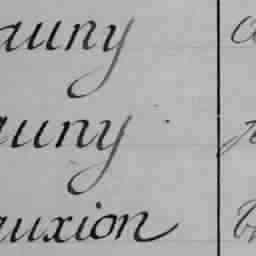 auny
auny
auxion